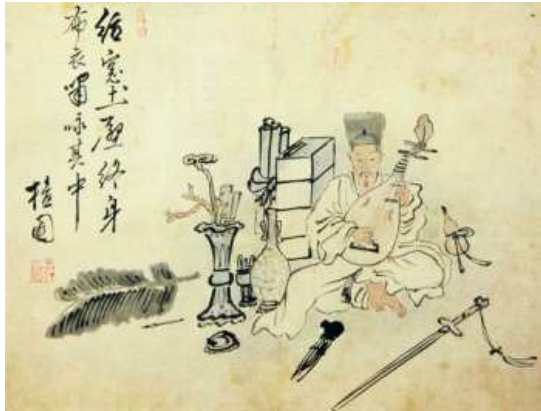 紙窓土壁終身
布衣嘯咏其中
檀園